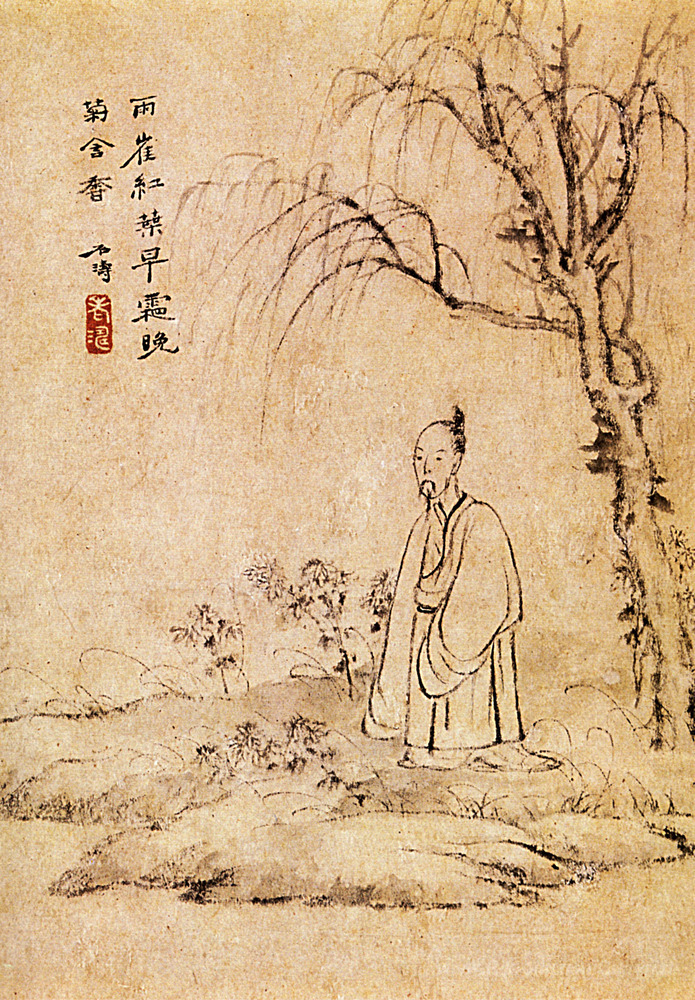 雨崔紅葉早霜晚
菊含香
石濤